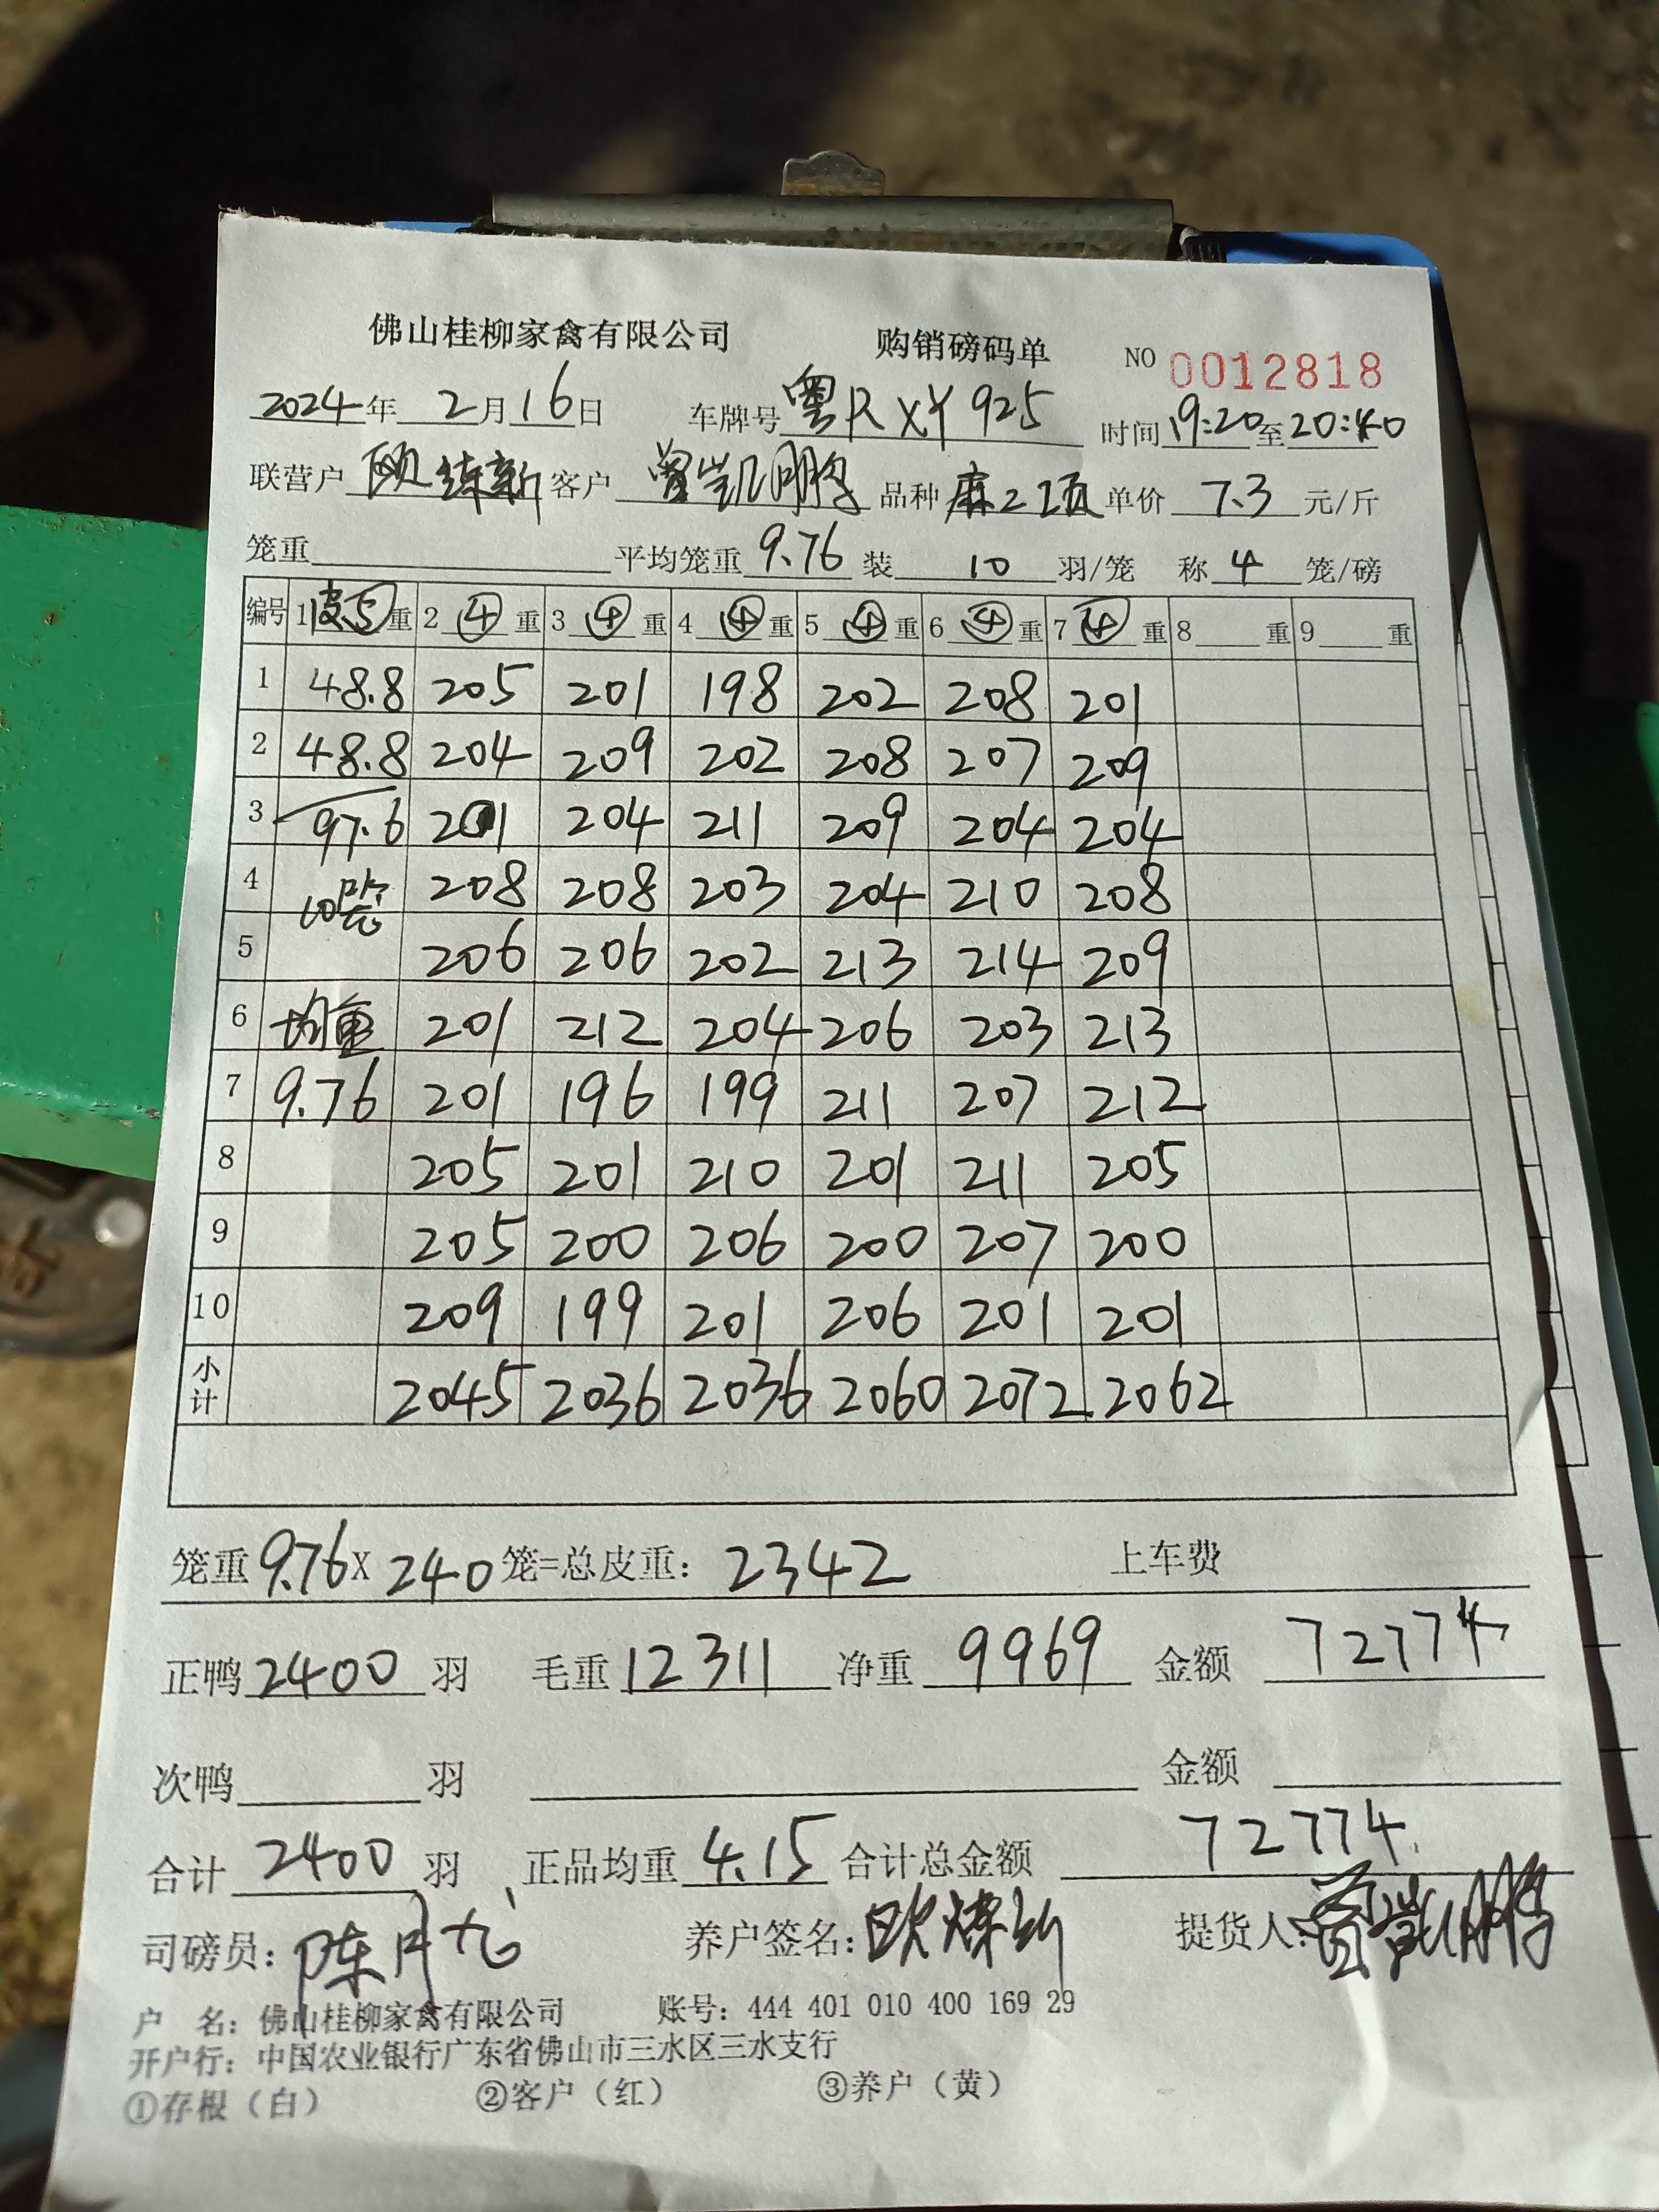 佛山桂柳家禽有限公司 购销磅码单 NO 0012818
2024年 2月16日 车牌号 粤R XY925 时间 19:20至20:40
联营户 客户 曾凯鹏 品种 麻二项 单价 7.3 元/斤
笼重 平均笼重 9.76 装 10 羽/笼 称 4 笼/磅
编号 1 皮5 重 2 ④ 重 3 ④ 重 4 ④ 重 5 ④ 重 6 ④ 重 7 ④ 重 8 重 9 重
1 48.8 205 201 198 202 208 201
2 48.8 204 209 202 208 207 209
3 97.6 201 204 211 209 204 204
4 10 208 208 203 204 210 208
5 206 206 202 213 214 209
6 均重 201 212 204 206 203 213
7 9.76 201 196 199 211 207 212
8 205 201 210 201 211 205
9 205 200 206 200 207 200
10 209 199 201 206 201 201
小计 2045 2036 2036 2060 2072 2062
笼重 9.76 X 240 笼=总皮重: 2342 上车费
正鸭 2400 羽 毛重 12311 净重 9969 金额 72774
次鸭 羽 金额
合计 2400 羽 正品均重 4.15 合计总金额 72774
司磅员: 陈月 养户签名: 提货人: 曾凯鹏
户 名: 佛山桂柳家禽有限公司 账号: 444 401 010 400 169 29
开户行: 中国农业银行广东省佛山市三水区三水支行
①存根（白） ②客户（红） ③养户（黄）